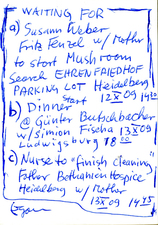 WAITING FOR
a) Susann Weber
Fritz Penzel w/ Mother
to start Mushroom
Search EHRENFRIEDHOF
PARKING LOT Heidelberg
Start 12 X 09 14
b) Dinner
@ Günter Butschbacher
w/ Simion Fischa 13 X 09
Ludwigsburg 18 00
c) Nurse to "finish cleaning"
Father Bethanien Hospice
Heidelberg w/ Mother
13 X 09 14 25